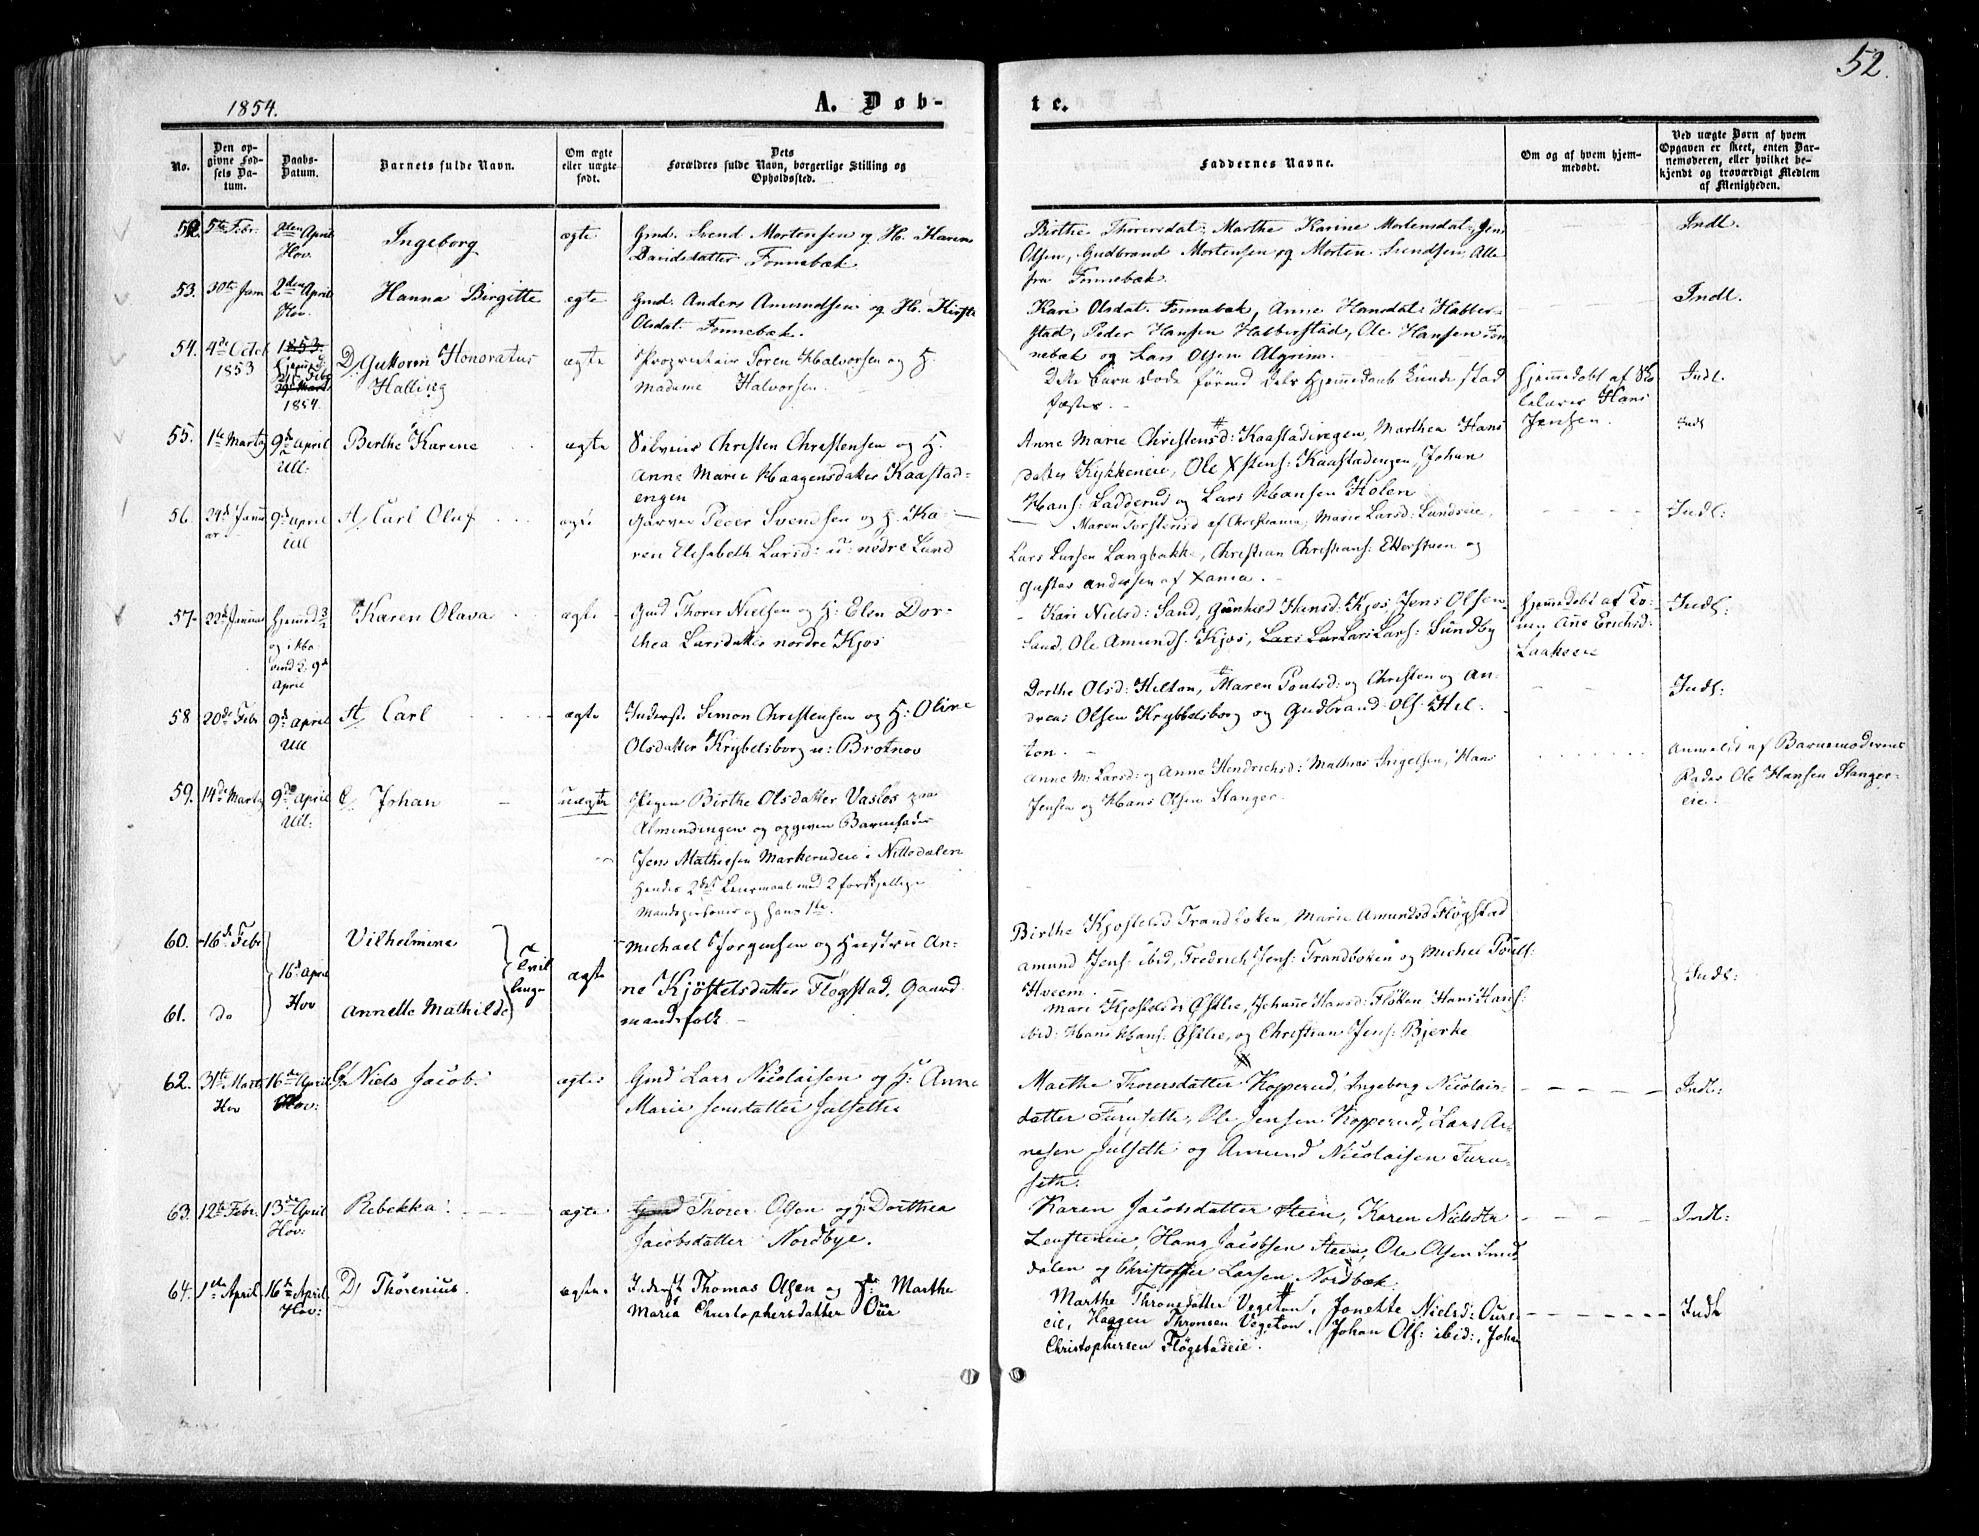 52.
1854.
A. Døb-
te.
No.
Den op-
givne Fød-
sels Da-
tum.
Daabs-
Datum.
Barnets fulde Navn.
Om ægte
eller uægte
født.
Dets
Forældres fulde Navn, borgerlige Stilling og
Opholdssted.
Faddernes Navne.
Om og af hvem hjem-
medøbt.
Ved uægte Børn af hvem
Opgaven er skeet, enten Bar-
nemoderen, eller hvilket be-
kjendt og troværdigt Medlem
af Menigheden.
52. 5te Febr. 2den April
Hov.
Ingeborg
ægte
Gmd. Svend Mortensen og H. Karen
Davidsdatter Fonnebæk
Birthe Thorersdat. Marthe Karine Mortensdat. Jens
Olsen, Gudbrand Mortensen og Morten Svendsen, Alle
fra Fonnebæk.
Indl.
53. 30te Jan 2den April
Hov.
Hanna Birgitte
ægte
Gmd. Anders Amundsen og H. Kirsti
Olsdat. Fonnebæk.
Kari Olsdat. Fonnebæk, Anne Hansdat. Habber-
stad, Peder Hansen Habberstad, Ole Hansen Fon-
nebæk og Lars Olsen Algrim.
Indl.
54. 4de Octob
1853
1853.
1854.
D/ Guttorm Honoratus
Halling
ægte
Proprietair Søren Halvorsen og H.
Madame Halvorsen
Dette Barn døde førend dets Hjemmedaab kunde stad
fæstes.
Hjemmedøbt af Sko
lelærer Hans
Jensen.
Indl.
55. 1te Marts 9de April
Ull:
Berthe Karene
ægte
Selveier Christen Christensen og H.
Anne Marie Haagensdatter Kaastad-
engen
Anne Marie Christensd: Kaastadengen, Marthea Hans
datter Kykkeneie, Ole Xstens: Kaastadengen, Johan
Hans: Ladderud og Lars Hansen Holen
Indl
56. 24d Janu
ar
9d April
Ull
A/ Carl Oluf
ægte
Garver Peder Svendsen og H. Ka-
ren Elisabeth Larsd: u: nødre Lund
Maren Torstensd af Christiania, Marie Larsd: Lundeeie,
Lars Larsen Langbakke, Christian Christians: Etterstuen og
Gustav Andersen af Xania.
Indl:
57. 22d Januar Hjemmed 3/2
og i Ho
vind d: 9d
April
Karen Olava
ægte
Gmd Thorer Nielsen og H: Elen Dor-
thea Larsdatter nordre Kjos
Kari Nielsd: Sand, Gunhild Hansd: Kjos, Jens Olsen
Sand, Ole Amunds: Kjos, Lars Lars: Sundby
Hjemmedøbt af Ko-
nen Anne Erichsd:
Laakeeie
Indl:
58 20de Febr 9d April
Ull
A/ Carl
ægte
Inderste Simon Christensen og H: Oline
Olsdatter Krybelsborg u: Brotnov
Dorthe Olsd: Hilton, Maren Poulsd: og Christen og An-
dreas Olsen Krybbelsborg og Gudbrand Ols: Hil-
ton.
Indl:
59. 14de Marts 9de April
Ull:
Johan
uægte
Pigen Birthe Olsdatter Vasløs paa
Almendingen og opgiven Barnefader
Jens Mathiesen Markerudeie i Nittedalen
Hendes 2det Leiermaal med 2 forskjellige
Mandspersoner og hans 1te.
Anne M: Larsd: og Anne Hendrichsd: Mathias Ingelsen, Hans
Jensen og Hans Olsen Stanger
Anmeldt af Barnemoderens
Fader Ole Hansen Stanger-
eie.
60. 16d Febr
16d April
Hov
Vilhelmine
Tvil
linger
ægte
Michael Jørgensen og Hustru An-
ne Kjøstelsdatter Fløgstad, Gaard-
mandsfolk
Birthe Kjøstelsd Trandboken, Marie Amundsd Fløgstad
Amund Jens: ibid, Fredrich Jens: Trandboken og Michel Pouls:
Hveem.
Indl:
61. do
Annette Mathilde
Mari Kjøstelsd: Østlie, Johanne Hansd: Fløken Hans Hans:
ibid: Hans Hans: Østlie, og Christian Jens: Bjerke
62. 31te Marts
Hov
16de April
Hov:
Niels Jacob.
ægte
Gmd Lars Nicolaisen og H: Anne
Marie Jensdatter Julsethe
Marthe Thorersdatter Kopperud, Ingeborg Nicolais-
datter Furuseth, Ole Jensen Kopperud, Lars Ar-
nesen Julseth og Amund Nicolaisen Furu-
seth.
Indl:
63. 12te Febr. 13de April
Hov:
Rebekka.
ægte
Gmd Thorer Olsen og H: Dorthea
Jacobsdatter Nordbye.
Karen Jacobsdatter Steen, Karen Nielsdtr
Hans Jacobsen Steen, Ole Olsen Smed
dalen og Christoffer Larsen Nordbæk.
Indl:
64. 1ste April 16de April
Hov:
D/ Thorenius.
ægte.
Inderst Thomas Olsen og H: Marthe
Maria Christophersdatter Our
Marthe Thronsdatter Vegston, Jonette Nielsd: Ours-
eie, Haagen Thronsen Vegston, Johan Ols: ibid:, Johan
Christophersen Fløgstadeie.
Indl